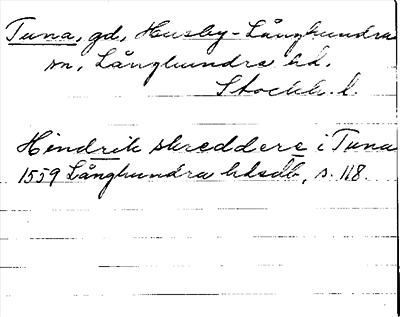 Tuna, gd, Husby-Långhundra
sn, Långhundra hd.
Stockh. l.
Hindrik skreddere i Tuna
1559 Långhundra hdsdb, s. 118.